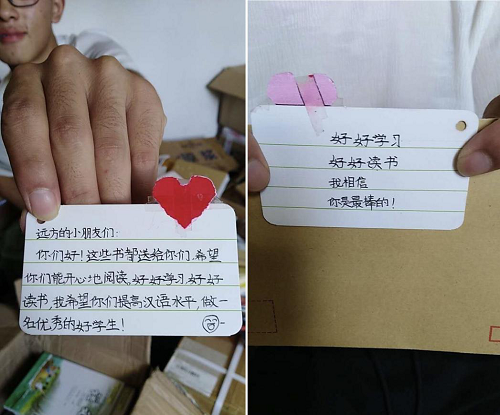 远方的小朋友们:
你们好!这些书都送给你们.希望
你们能开心地阅读.好好学习,好好
读书,我希望你们提高汉语水平,做一
名优秀的好学生!
好好学习
好好读书
我相信
你是最棒的!